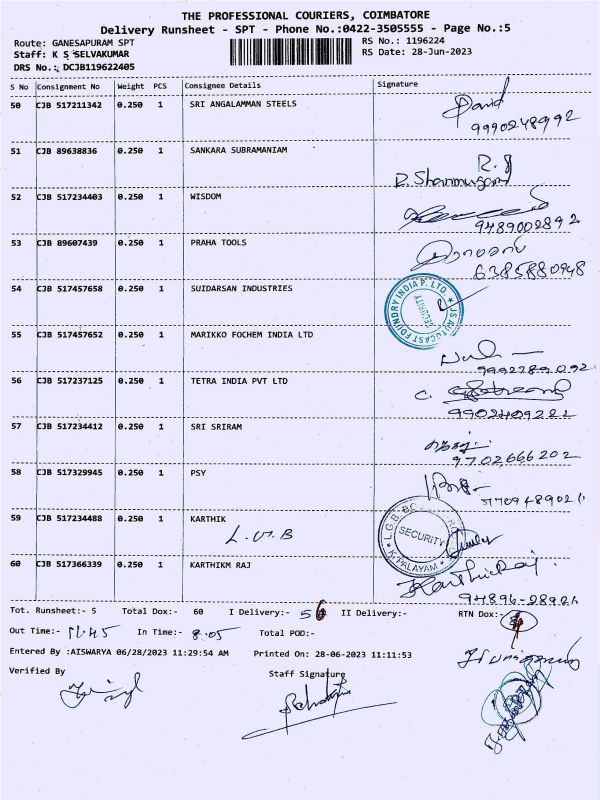 THE PROFESSIONAL COURIERS, COIMBATORE
Delivery Runsheet - SPT - Phone No.:0422-3505555 - Page No.:5
Route: GANESAPURAM SPT RS No.: 1196224
Staff: K S SELVAKUMAR RS Date: 28-Jun-2023
DRS No.: DCJB119622405
S No Consignment No Weight PCS Consignee Details Signature
50 CJB 517211342 0.250 1 SRI ANGALAMMAN STEELS David
9990248992
51 CJB 89638836 0.250 1 SANKARA SUBRAMANIAM
R. Shanmugam
52 CJB 517234403 0.250 1 WISDOM
9489002892
53 CJB 89607439 0.250 1 PRAHA TOOLS
6385880948
54 CJB 517457658 0.250 1 SUIDARSAN INDUSTRIES
JS AUTOCAST FOUNDRY INDIA P. LTD. SECURITY
55 CJB 517457652 0.250 1 MARIKKO FOCHEM INDIA LTD
9992789092
56 CJB 517237125 0.250 1 TETRA INDIA PVT LTD
9902409222
57 CJB 517234412 0.250 1 SRI SRIRAM
9702666202
58 CJB 517329945 0.250 1 PSY
59 CJB 517234488 0.250 1 KARTHIK
L.G.B SECURITY PALAYAM
60 CJB 517366339 0.250 1 KARTHIKM RAJ
Karthicraj
94896-28921
Tot. Runsheet:- 5 Total Dox:- 60 I Delivery:- 56 II Delivery:- RTN Dox:-
Out Time:- 11.45 In Time:- 8.05 Total POD:-
Entered By :AISWARYA 06/28/2023 11:29:54 AM Printed On: 28-06-2023 11:11:53
Verified By Staff Signature